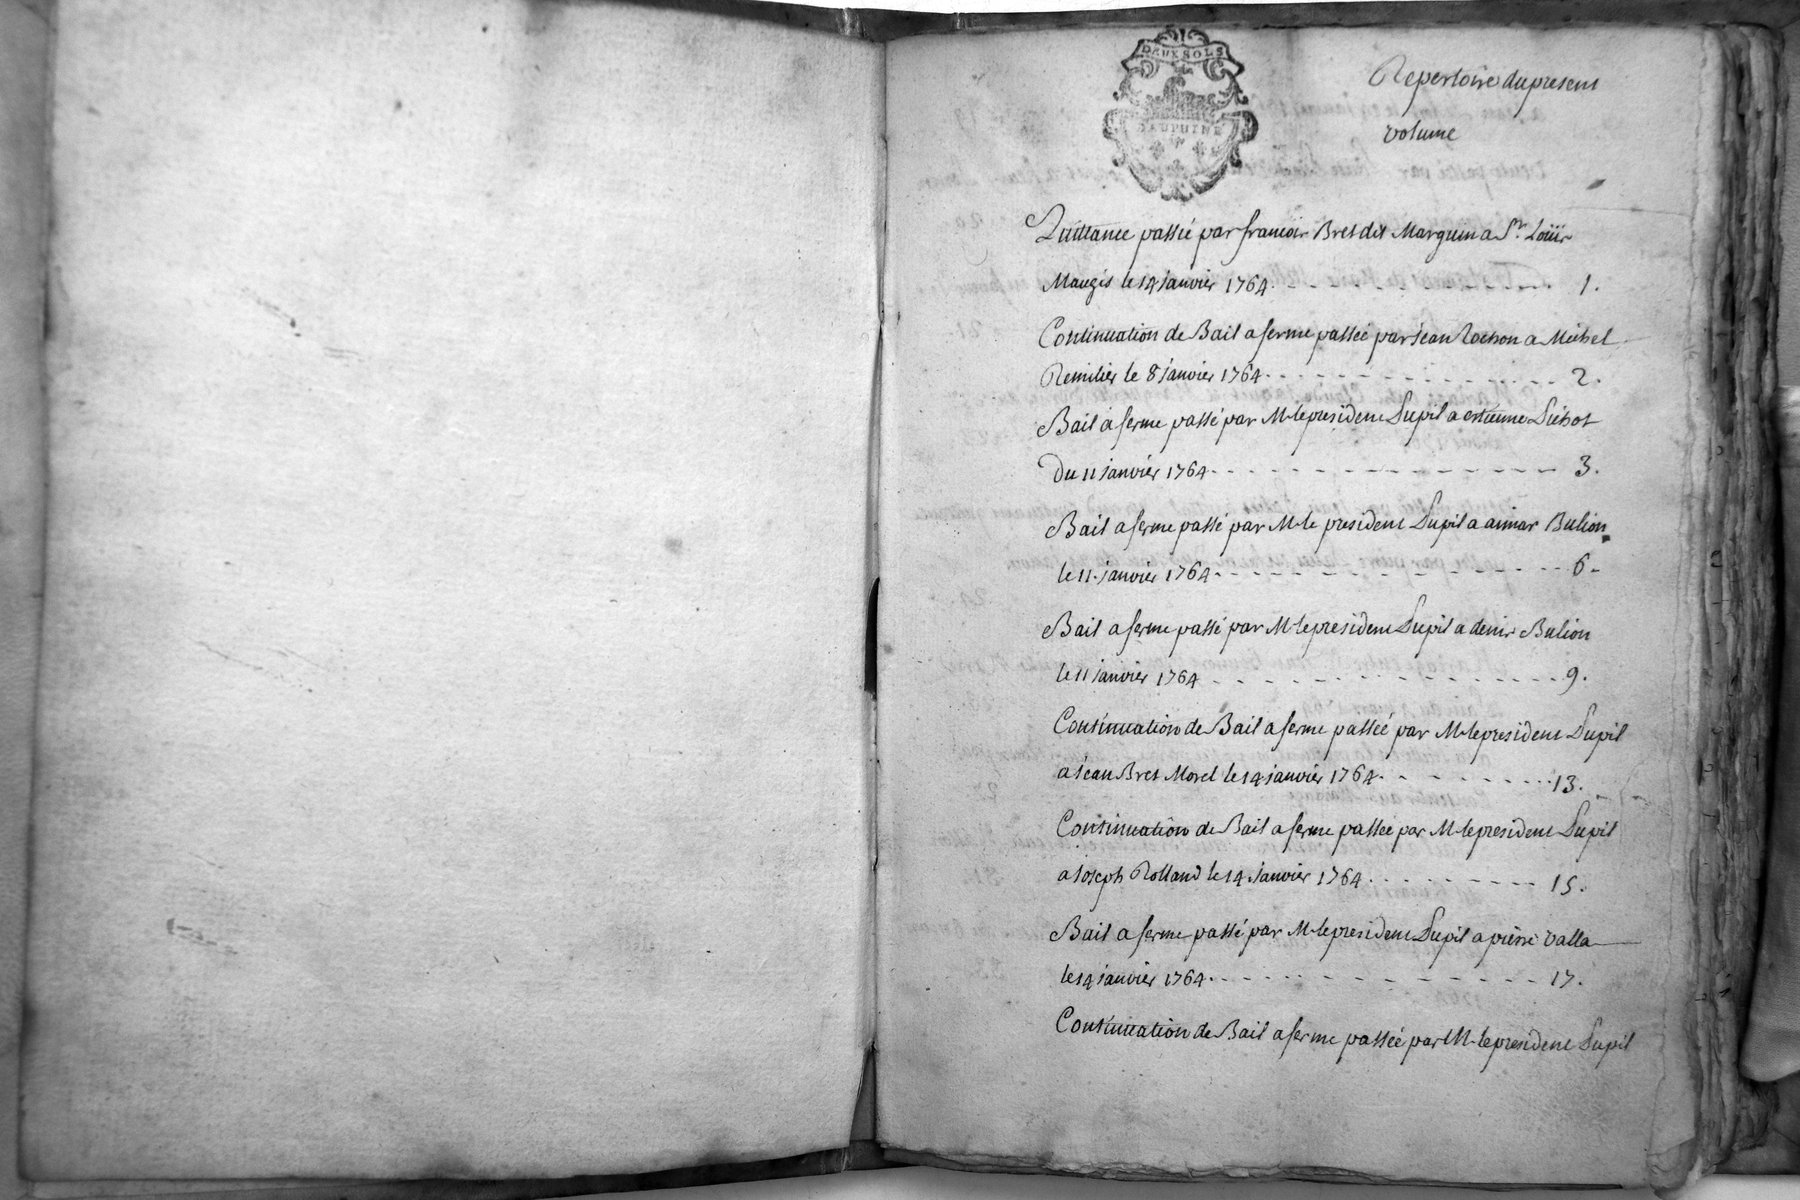 DEUX SOLS
DAUPHINE
Repertoire du present
volume
Quittance passée par francois Bret dit Marguin a Sr. Loüis
Maugis le 14 janvier 1764. 1.
Continuation de Bail a ferme passée par jean Rochon a Michel
Remilier le 8 janvier 1764. 2.
Bail a ferme passé par M. le president Dupil a estienne Dichot
Du 11 janvier 1764. 3.
Bail a ferme passé par M. le president Dupil a aimar Bulion
le 11. janvier 1764. 6.
Bail a ferme passé par M. le president Dupil a denis Bulion
le 11 janvier 1764 9.
Continuation de Bail a ferme passée par M. le president Dupil
a jean Bret Morel le 14 janvier 1764. 13.
Continuation de Bail a ferme passée par M. le president Dupil
a joseph Rolland le 14. janvier 1764. 15.
Bail a ferme passé par M. le president Dupil a pierre valla
le 14 janvier 1764. 17.
Continuation de Bail a ferme passée par M. le president Dupil